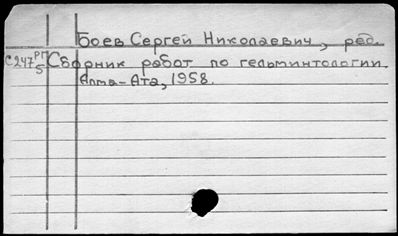 Боев Сергей Николаевич, ред.
С247 РП 5 Сборник работ по гельминтологии.
Алма-Ата, 1958.